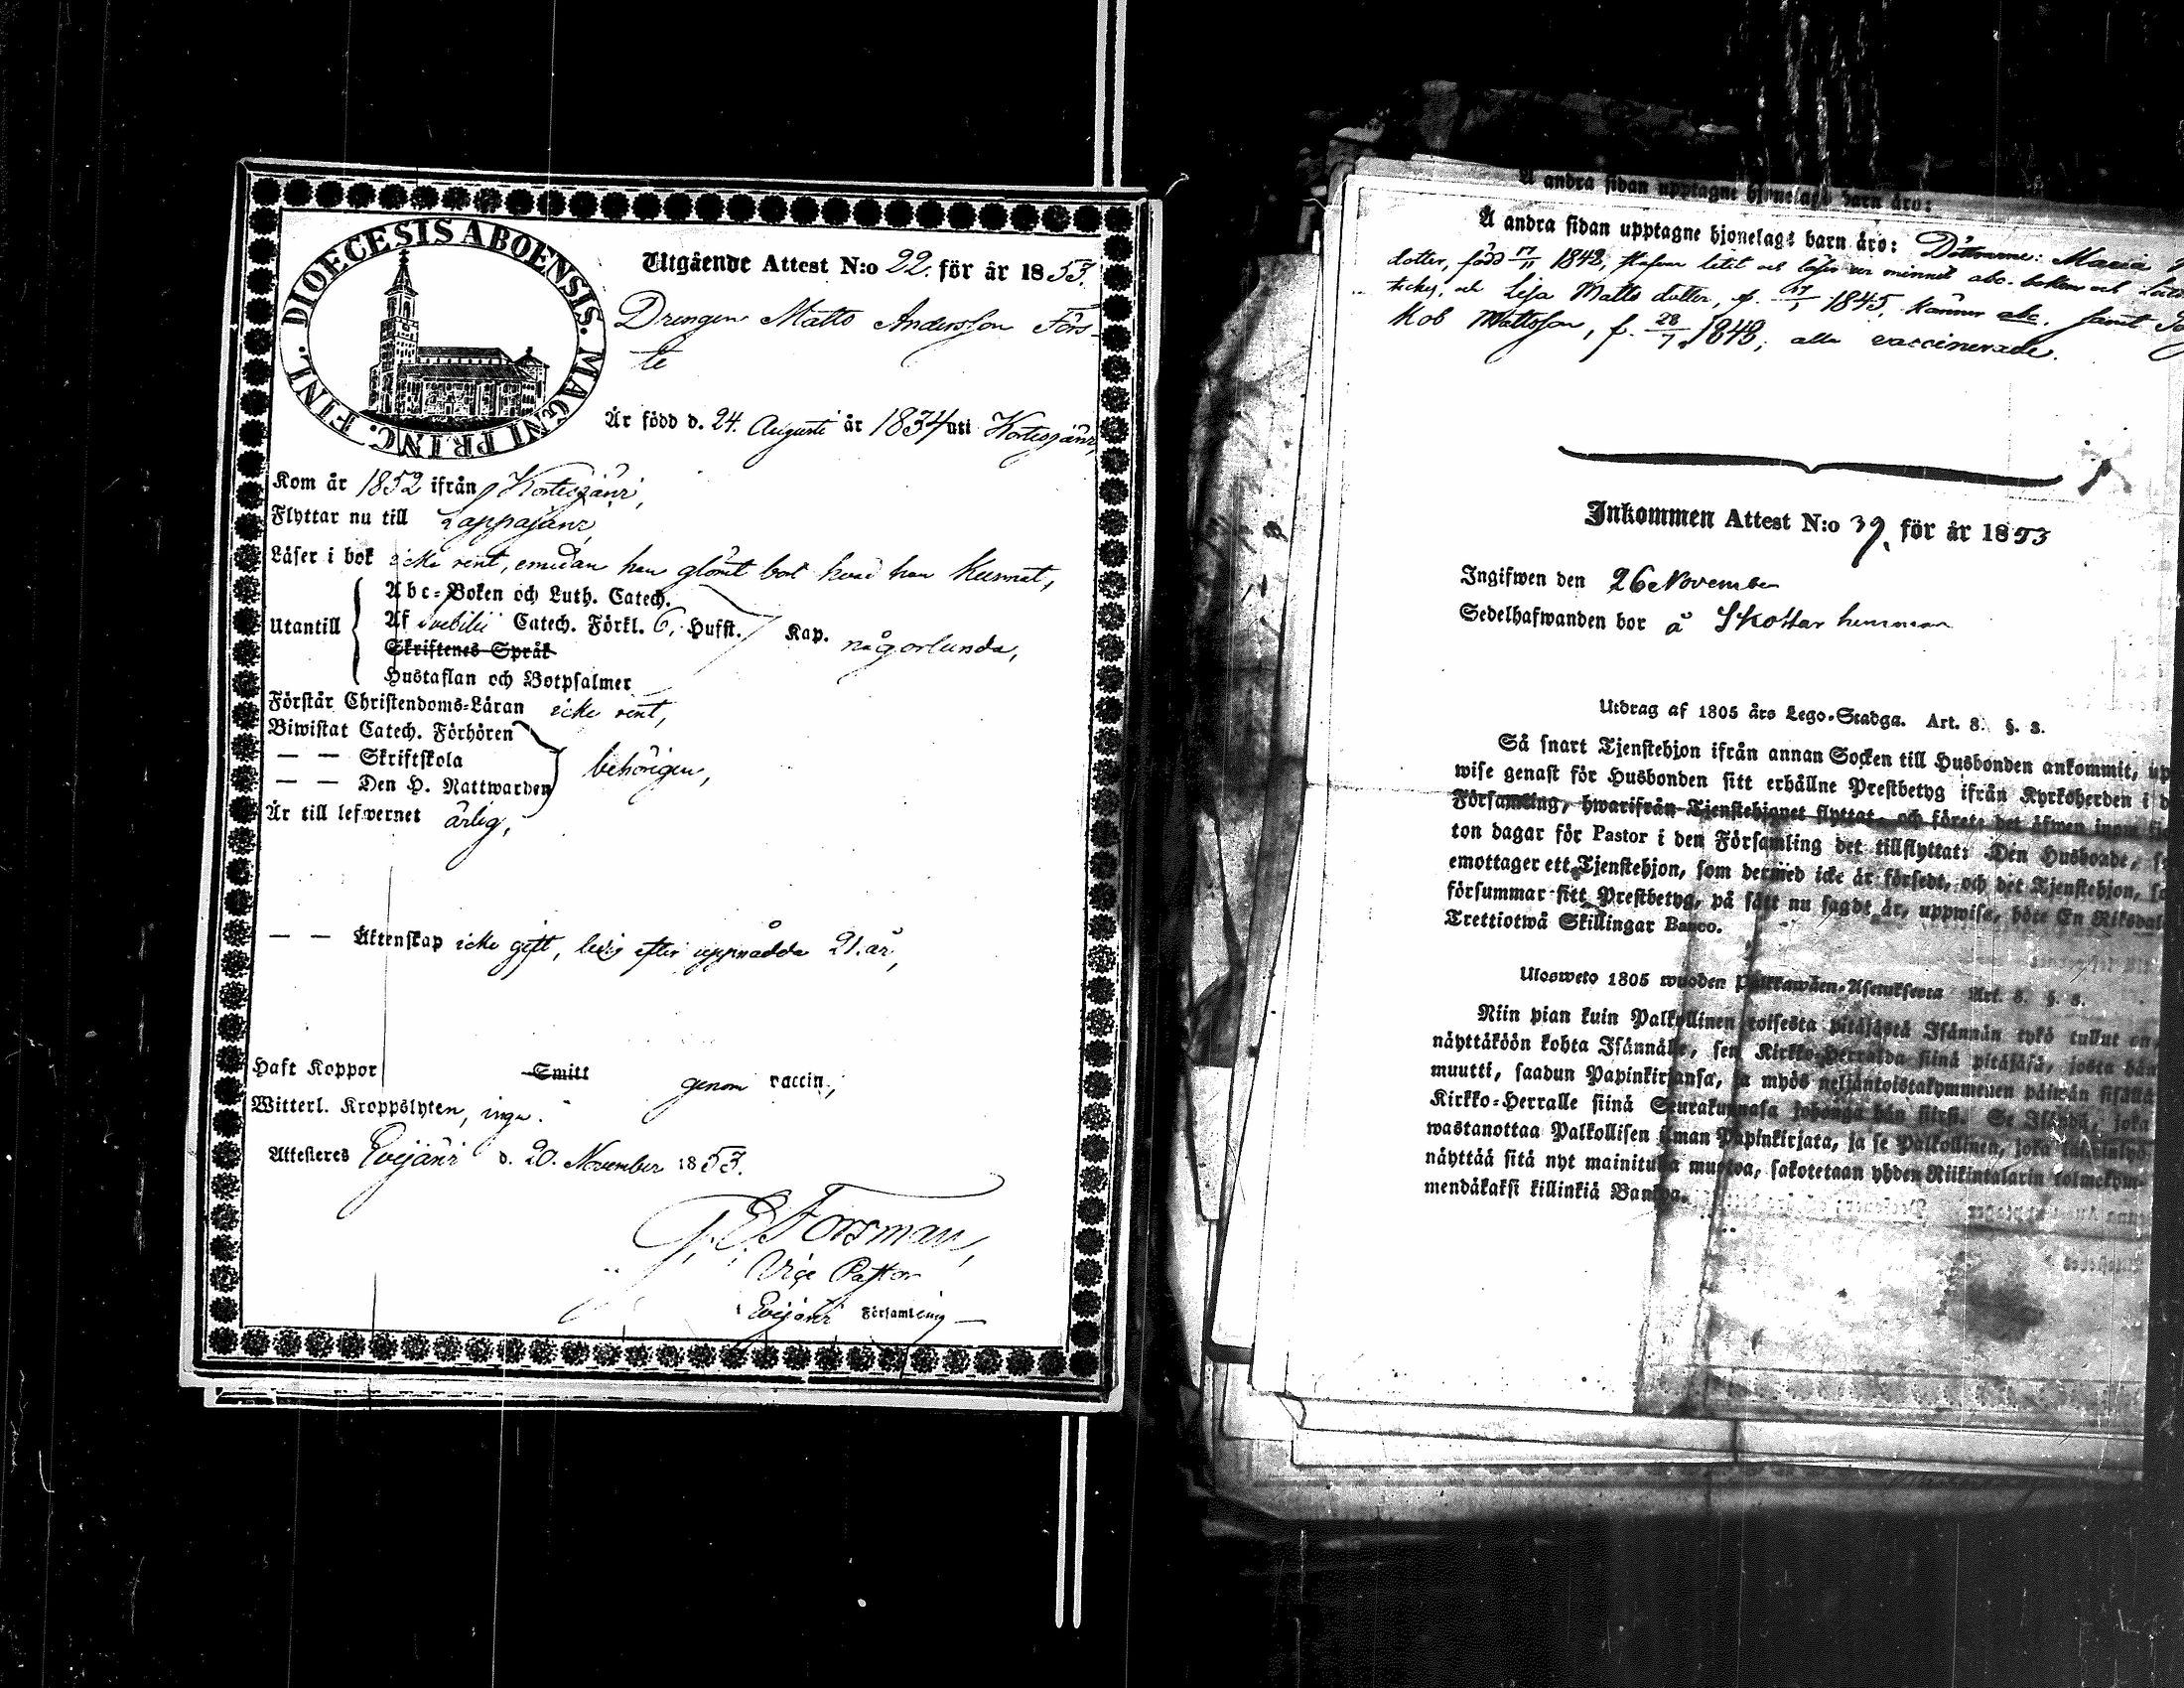 DIOECESIS ABOENSIS. MAGNI PRINC. FINL.
Utgående Attest N:o 22. för år 1853.
Drengen Matts Andersson Förs-
te
Är född d. 24. Augusti år 1834 uti Kortesjärvi,
Kom år 1852 ifrån Kortesjärvi,
Flyttar nu till Lappajärvi,
Läser i bok icke rent, emedan han glömt bort hvad han kunnat,
Utantill
Abc-Boken och Luth. Catech.
Af Svebilii Catech. Förkl. 6, Hufst. Kap. någorlunda,
Skriftenes Språk
Hustaflan och Botpsalmer
Förstår Christendoms-Läran icke rent,
Biwistat Catech. Förhören
— — Skriftskola behörigen,
— — Den H. Nattwarden
Är till lefwernet ärlig,
— — Äktenskap icke gift, ledig efter uppnådda 21. år,
Haft Koppor Smitt genom vaccin.,
Witterl. Kroppslyten, inga.
Attesteres Evijärvi d. 20. November 1853.
Forsman,
Vice Pastor
Evijärvi Församling
Å andra sidan upptagne hjonelags barn äro:
Å andra sidan upptagne hjonelags barn äro: Döttrarne: Maria
dotter, född 17/11 1842, abc-boken och
och Lisa Matts dotter, f. 1845, känner abc. samt
kob Mattsson, f. 28/7 1848; alla vaccinerade.
Inkommen Attest N:o 39. för år 1853
Ingifwen den 26 November
Sedelhafwanden bor å Skottar hemman
Utdrag af 1805 års Lego-Stadga. Art. 8. §. 3.
Så snart Tjenstehjon ifrån annan Socken till Husbonden ankommit, up
wise genast för Husbonden sitt erhållne Prestbetyg ifrån Kyrkoherden i d
Församling, hwarifrån Tjenstehjonet flyttat, och förete det äfwen inom
ton dagar för Pastor i den Församling det tillflyttat: Den Husbonde, s
emottager ett Tjenstehjon, som dermed icke är försedt, och det Tjenstehjon,
försummar sitt Prestbetyg, på sätt nu sagdt är, uppwisa, böte En Riksdal
Trettiotwå Skillingar Banco.
Ulosweto 1805 wuoden Palkkawäen-Asetuksesta Art. 8. §. 3.
Niin pian kuin Palkollinen toisesta pitäjästä Isännän tykö tullut on,
näyttäköön kohta Isännälle, sen Kirkko-Herralda siinä pitäjäsä, josta hän
muutti, saadun Papinkirjansa, ja myös neljäntoistakymmenen päiwän sisällä
Kirkko-Herralle siinä Seurakunnasa johonga hän siirsi. Se Isändä, joka
wastanottaa Palkollisen ilman Papinkirjata, ja se Palkollinen, joka
näyttää sitä nyt mainitulla muotoa, sakotetaan yhden Riikintalarin kolmekym-
mendäkaksi killinkiä Bankoa.